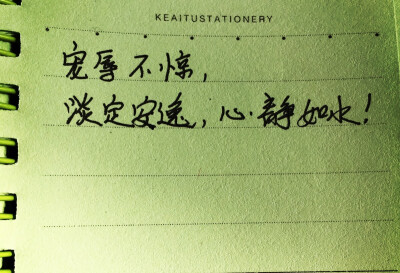 KEAITUSTATIONERY
宠辱不惊,
淡定安逸,心静如水!